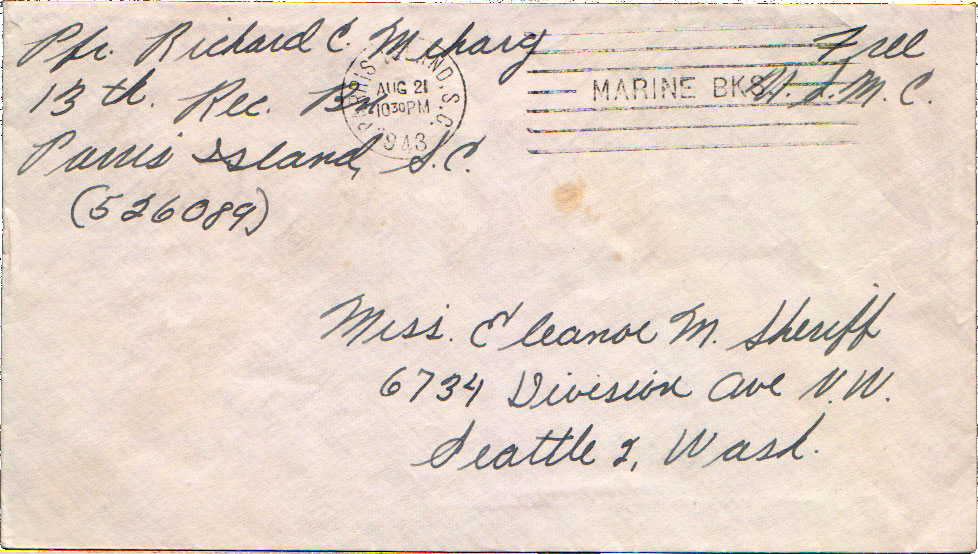 Pfc. Richard C. Meharg
Free
13th. Rec. Bn.
U.S.M.C.
Parris Island, S.C.
(526089)
PARRIS ISLAND, S.C.
AUG 21
1030PM
1943
MARINE BKS.
Miss. Eleanor M. Sheriff
6734 Division Ave N.W.
Seattle 7, Wash.